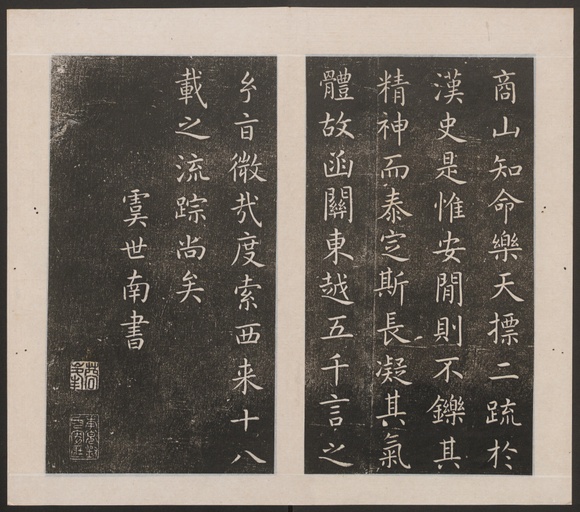 商山知命樂天摽二疏於
漢史是惟安閒則不鑠其
精神而泰定斯長凝其氣
體故函關東越五千言之
玄旨微㢤度索西来十八
載之流踪尚矣
虞世南書